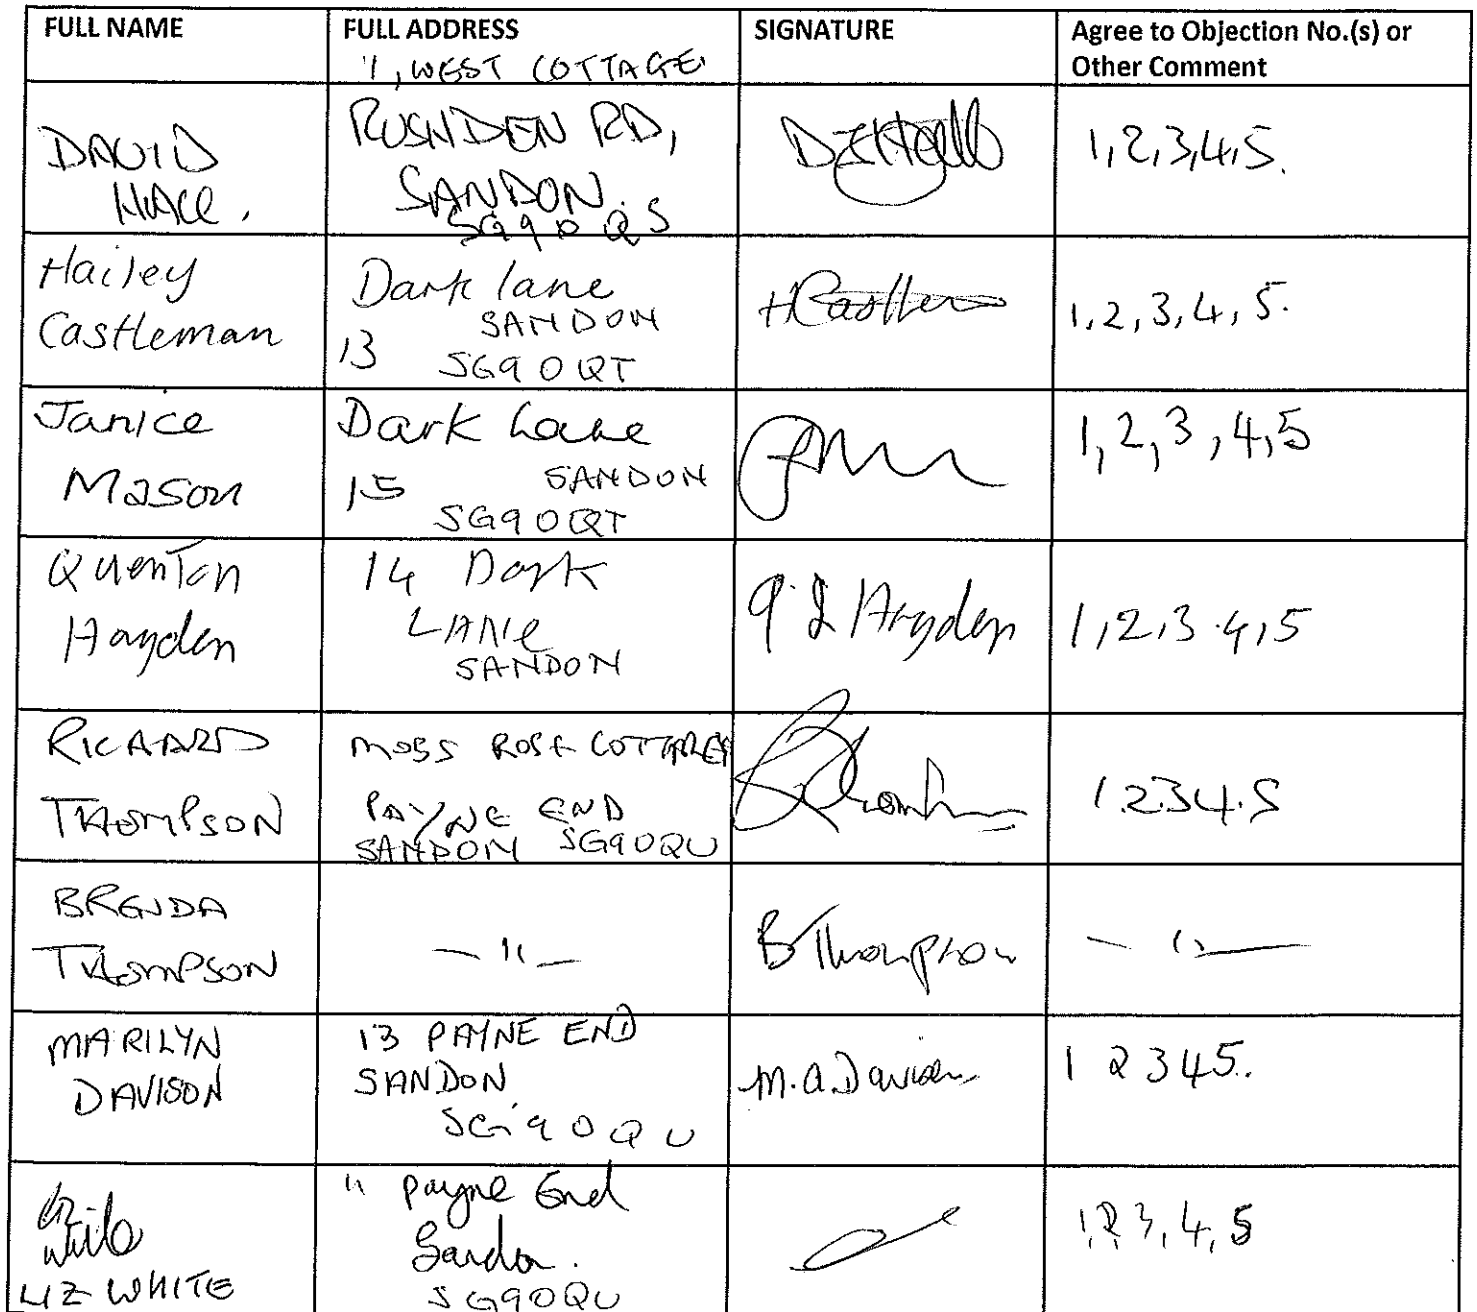 FULL NAME FULL ADDRESS SIGNATURE Agree to Objection No.(s) or
Other Comment
1, WEST COTTAGE
DAVID
RUSHDEN RD,
SANDON.
SG9 0 QS
1,2,3,4,5.
Hailey
Castleman
Dark lane
SANDON
13
SG9 0QT
HCastle
1,2,3,4,5.
Janice
Mason
Dark Lane
15 SANDON
SG9 0QT
1,2,3,4,5
Quenton
Hayden
14 Dark
LANe
SANDON
Q J Hayden
1,2,3.4,5
RICHARD
THOMPSON
MOSS ROSE COTTAGE
PAYNE END
SANDON SG9 0QU
1 2 3 4.5
BRENDA
THOMPSON
— " —
B Thompson
— " —
MARILYN
DAVISON
13 PAYNE END
SANDON
SG9 0 QU
M.A.Davison
1 2 3 4 5.
Liz
White
LIZ WHITE
11 Payne End
Sandon.
SG9 0QU
1,2 3,4,5